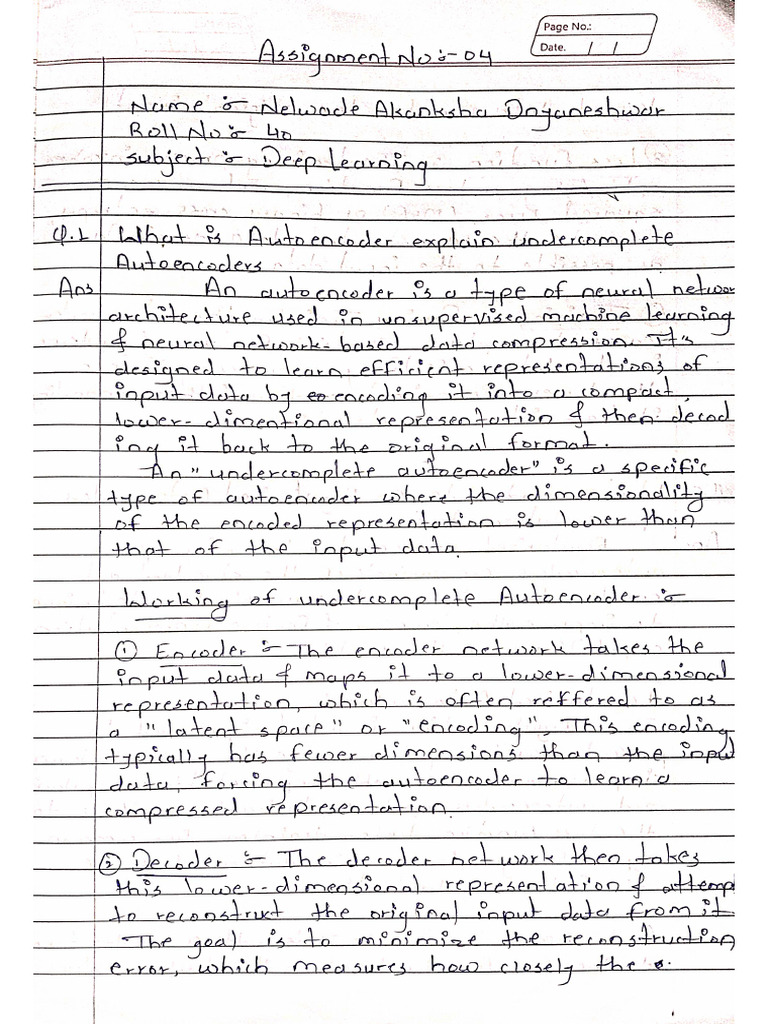 Page No.:
Date. / /
Assignment No :- 04
Name :- Nelwade Akanksha Dnyaneshwar
Roll No :- 40
subject :- Deep Learning
Q.1 What is Autoencoder explain undercomplete
Autoencoders
Ans An autoencoder is a type of neural networ
architecture used in unsupervised machine learning
& neural network-based data compression. It's
designed to learn efficient representations of
input data by encoding it into a compact,
lower-dimentional representation & then decod
ing it back to the original format.
An "undercomplete autoencoder" is a specific
type of autoencoder where the dimensionality
of the encoded representation is lower than
that of the input data.
Working of undercomplete Autoencoder :-
① Encoder :- The encoder network takes the
input data & maps it to a lower-dimensional
representation, which is often reffered to as
a "latent space" or "encoding". This encoding
typically has fewer dimensions than the input
data, forcing the autoencoder to learn a
compressed representation.
② Decoder :- The decoder network then takes
this lower-dimensional representation & attemp
to reconstruct the original input data from it.
The goal is to minimize the reconstruction
error, which measures how closely the